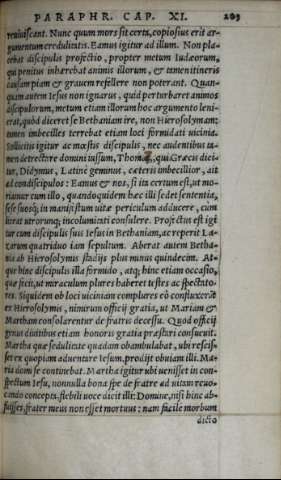 PARAPHR. CAP. XI. 203
reuiuiscant. Nunc quum mors sit certa, copiosius erit ar-
gumentum credulitatis. Eamus igitur ad illum. Non pla-
cebat discipulis profectio, propter metum Iudæorum,
qui penitus inhærebat animis illorum, & tamen itineris
causam piam & grauem refellere non poterant. Quan-
quam autem Iesus non ignarus, quid perturbaret animos
discipulorum, metum etiam illorum hoc argumento leni-
erat, quòd diceret se Bethaniam ire, non Hierosolymam:
tamen imbecilles terrebat etiam loci formidati uicinia.
Sollicitis igitur ac mœstis discipulis, nec audentibus ta-
men detrectare domini iussum, Thomas, qui Græcis dici-
tur, Didymus, Latinè geminus, cæteris imbecillior, ait
ad condiscipulos: Eamus & nos, si ita certum est, ut mo-
riamur cum illo, quandoquidem hæc illi sedet sententia,
sese suosq́; in manifestum uitæ periculum adducere, cum
liceat utrorunq; incolumitati consulere. Profectus est igi
tur cum discipulis suis Iesus in Bethaniam, ac reperit La-
zarum quatriduo iam sepultum. Aberat autem Betha-
nia ab Hierosolymis stadijs plus minus quindecim. At-
que hinc discipulis illa formido, atq; hinc etiam occasio,
quæ fecit, ut miraculum plures haberet testes ac spectato-
res. Siquidem ob loci uiciniam complures eò confluxerãt
ex Hierosolymis, nimirum officij gratia, ut Mariam &
Martham consolarentur de fratris decessu. Quod officij
genus diuitibus etiam honoris gratia præstari consueuit.
Martha quæ sedulitate quadam obambulabat, ubi resciss-
set ex quopiam aduentare Iesum, prodijt obuiam illi. Ma
ria domi se continebat. Martha igitur ubi uenisset in con-
spectum Iesu, nonnulla bona spe de fratre ad uitam reuo-
cando concepta, flebili uoce dicit illi: Domine, nisi hinc ab-
fuisses, frater meus non esset mortuus: nam facilè morbum
dicto